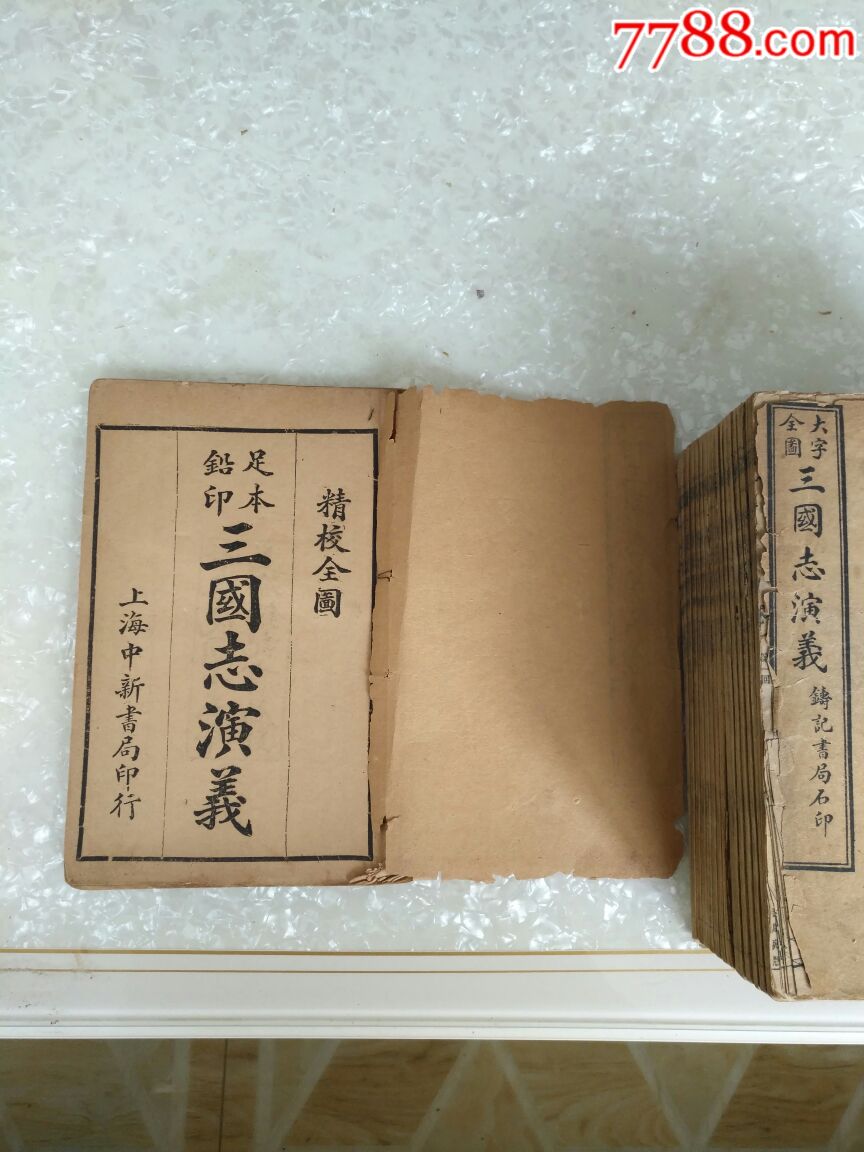 7788.com
精校全圖
足本
鉛印
三國志演義
上海中新書局印行
大字
全圖
三國志演義
鑄記書局石印